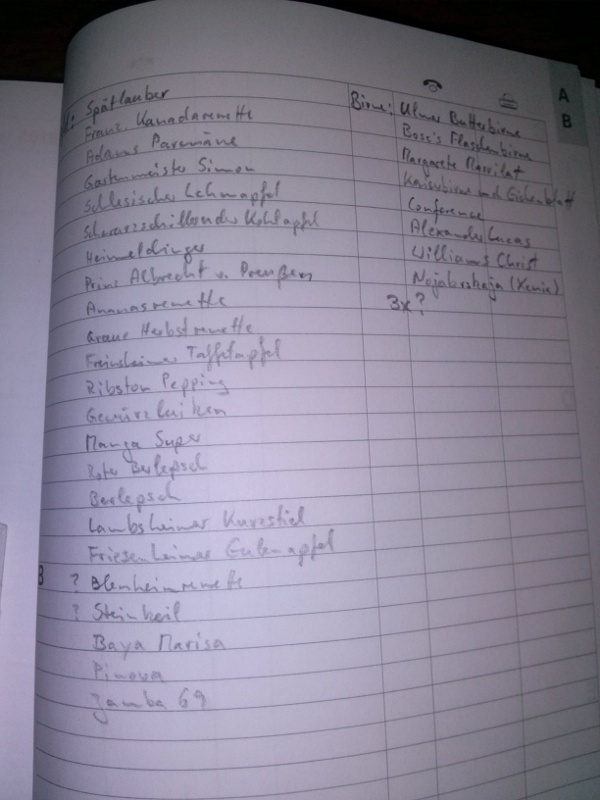 Spätlauber
Franz. Kanadarenette
Adams Parmäne
Gartenmeister Simon
Schlesischer Lehmapfel
Schwarzschillernder Kohlapfel
Heimeldinger
Prinz Albrecht v. Preußen
Ananasrenette
Graue Herbstrenette
Freinsheimer Taffetapfel
Ribston Pepping
Gewürzluiken
Manga Super
Roter Berlepsch
Berlepsch
Lambsheimer Kurzstiel
Friesenheimer Eulenapfel
? Blenheimrenette
? Steinkeil
Baya Marisa
Pinova
Jamba 69
Birne: Ulmer Butterbirne
Bosc's Flaschenbirne
Margarete Marrilat
Konfbirne und Eichenblatt
Conference
Alexander Lucas
Williams Christ
Nojabrskaja (Xenia)
3x ?
A
B